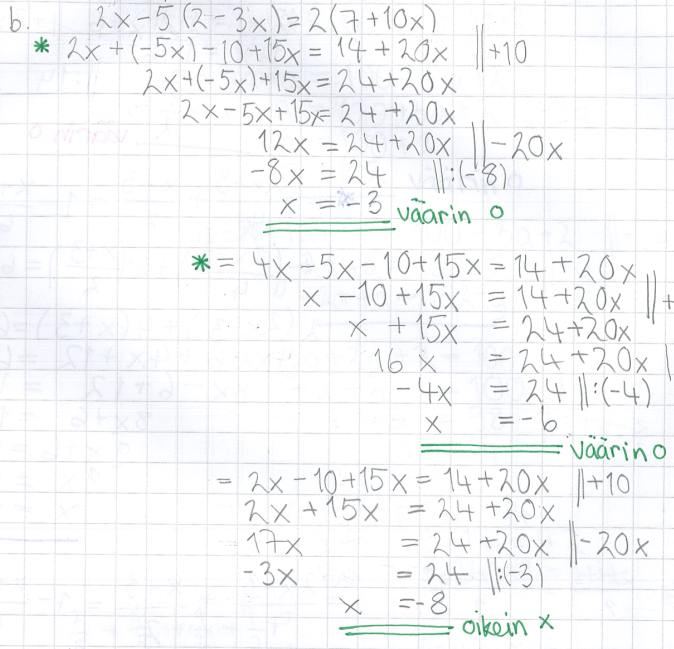 b. 2x-5(2-3x)=2(7+10x)
* 2x+(-5x)-10+15x=14+20x ||+10
2x+(-5x)+15x=24+20x
2x-5x+15x=24+20x
12x=24+20x ||-20x
-8x=24 ||:(-8)
x=-3 väärin 0
*= 4x-5x-10+15x=14+20x
x-10+15x=14+20x ||+
x+15x=24+20x
16x=24+20x |
-4x=24 ||:(-4)
x=-6
väärin 0
= 2x-10+15x=14+20x ||+10
2x+15x=24+20x
17x=24+20x ||-20x
-3x=24 ||:(-3)
x=-8
oikein x